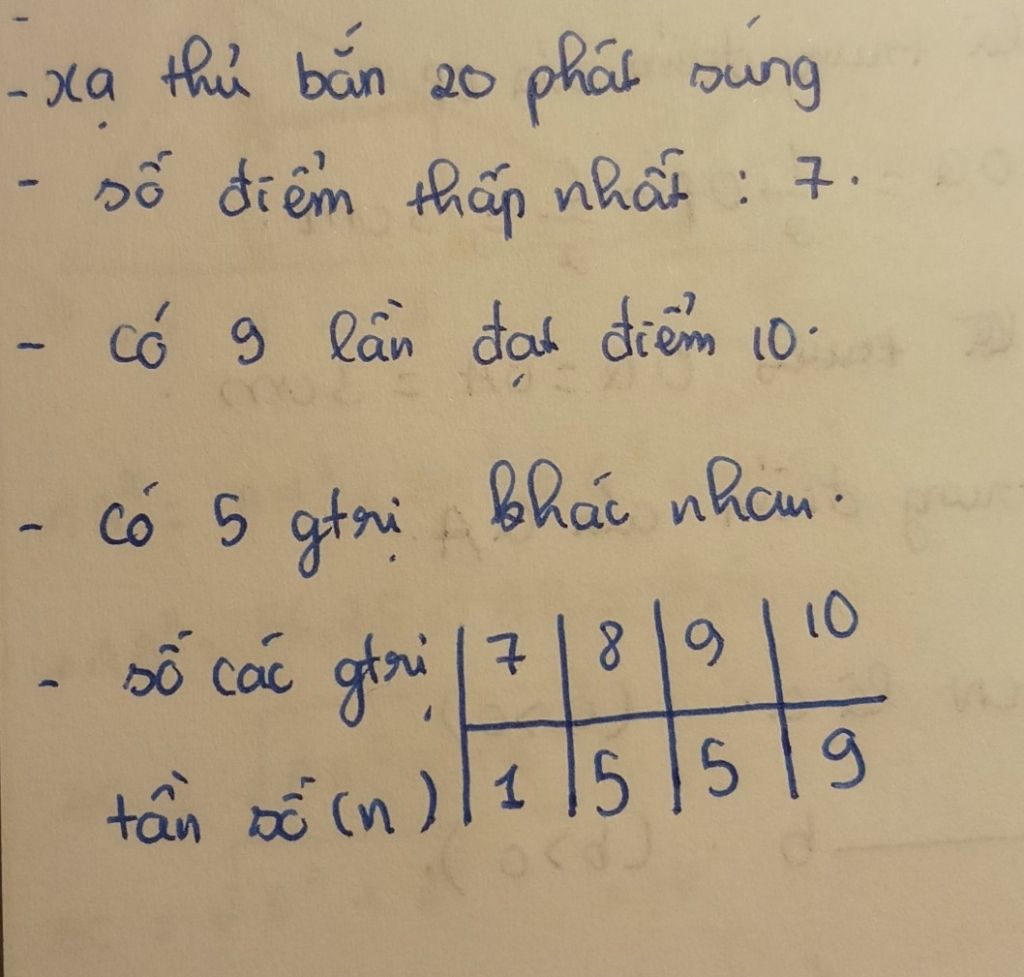 - xạ thủ bắn 20 phát súng
- số điểm thấp nhất : 7.
- có 9 lần đạt điểm 10.
- có 5 gtrị khác nhau.
- số các gtrị | 7 | 8 | 9 | 10
tần số (n) | 1 | 5 | 5 | 9